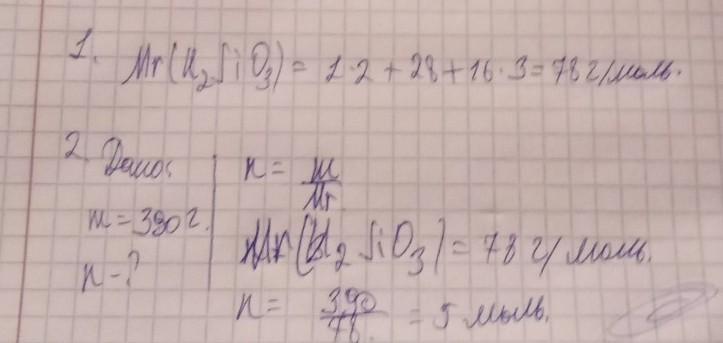 1. Mr(H₂SiO₃) = 1·2 + 28 + 16·3 = 78 г/моль.
2. Дано:
m = 390 г.
n - ?
n = m/Mr
Mr(H₂SiO₃) = 78 г/моль.
n = 390/78 = 5 моль.